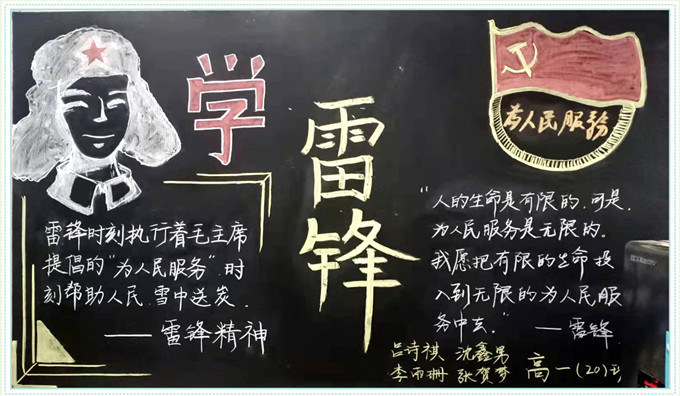 学
雷锋
为人民服务
雷锋时刻执行着毛主席
提倡的“为人民服务”.时
刻帮助人民.雪中送炭.
——雷锋精神
“人的生命是有限的.可是.
为人民服务是无限的.
我愿把有限的生命投
入到无限的为人民服
务中去.” ——雷锋
吕诗祺 沈鑫男
李雨珊 张贺梦 高一(20)班